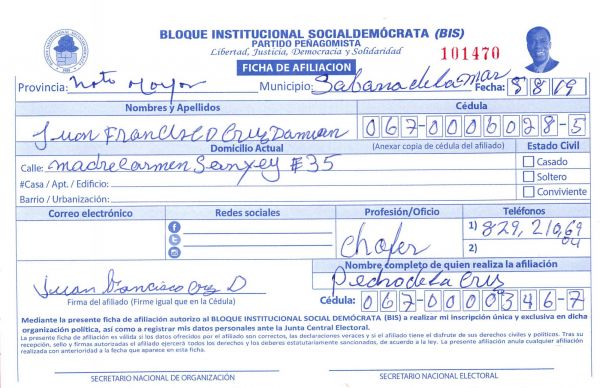 BLOQUE INSTITUCIONAL SOCIALDEMÓCRATA (BIS)
PARTIDO PEÑAGOMISTA
Libertad, Justicia, Democracia y Solidaridad
101470
FICHA DE AFILIACION
Provincia: Mayor Municipio: Sabana de la Mar Fecha: 8 8 19
Nombres y Apellidos Cédula
Juan Francisco Cruz Damian 067-0006028-5
Domicilio Actual (Anexar copia de cédula del afiliado) Estado Civil
Calle: madre Carmen #35 Casado
#Casa / Apt. / Edificio: Soltero
Barrio / Urbanización: Conviviente
Correo electrónico Redes sociales Profesión/Oficio Teléfonos
Chofer 1) 829, 210,69
04
2)
Nombre completo de quien realiza la afiliación
Juan Francisco Cruz D Pedro de la Cruz
Firma del afiliado (Firme igual que en la Cédula) Cédula: 067-0000346-7
Mediante la presente ficha de afiliación autorizo al BLOQUE INSTITUCIONAL SOCIAL DEMÓCRATA (BIS) a realizar mi inscripción única y exclusiva en dicha
organización política, así como a registrar mis datos personales ante la Junta Central Electoral.
La presente ficha de afiliación es válida si los datos ofrecidos por el afiliado son correctos, las declaraciones veraces y si el afiliado tiene el disfrute de sus derechos civiles y políticos. Tras su
recepción, sello y firmas autorizadas el afiliado ejercerá todos los derechos y los deberes estatutariamente sancionados, de acuerdo a la ley. La presente afiliación anula cualquier afiliación
realizada con anterioridad a la fecha que aparece en esta ficha.
SECRETARIO NACIONAL DE ORGANIZACIÓN SECRETARIO NACIONAL ELECTORAL